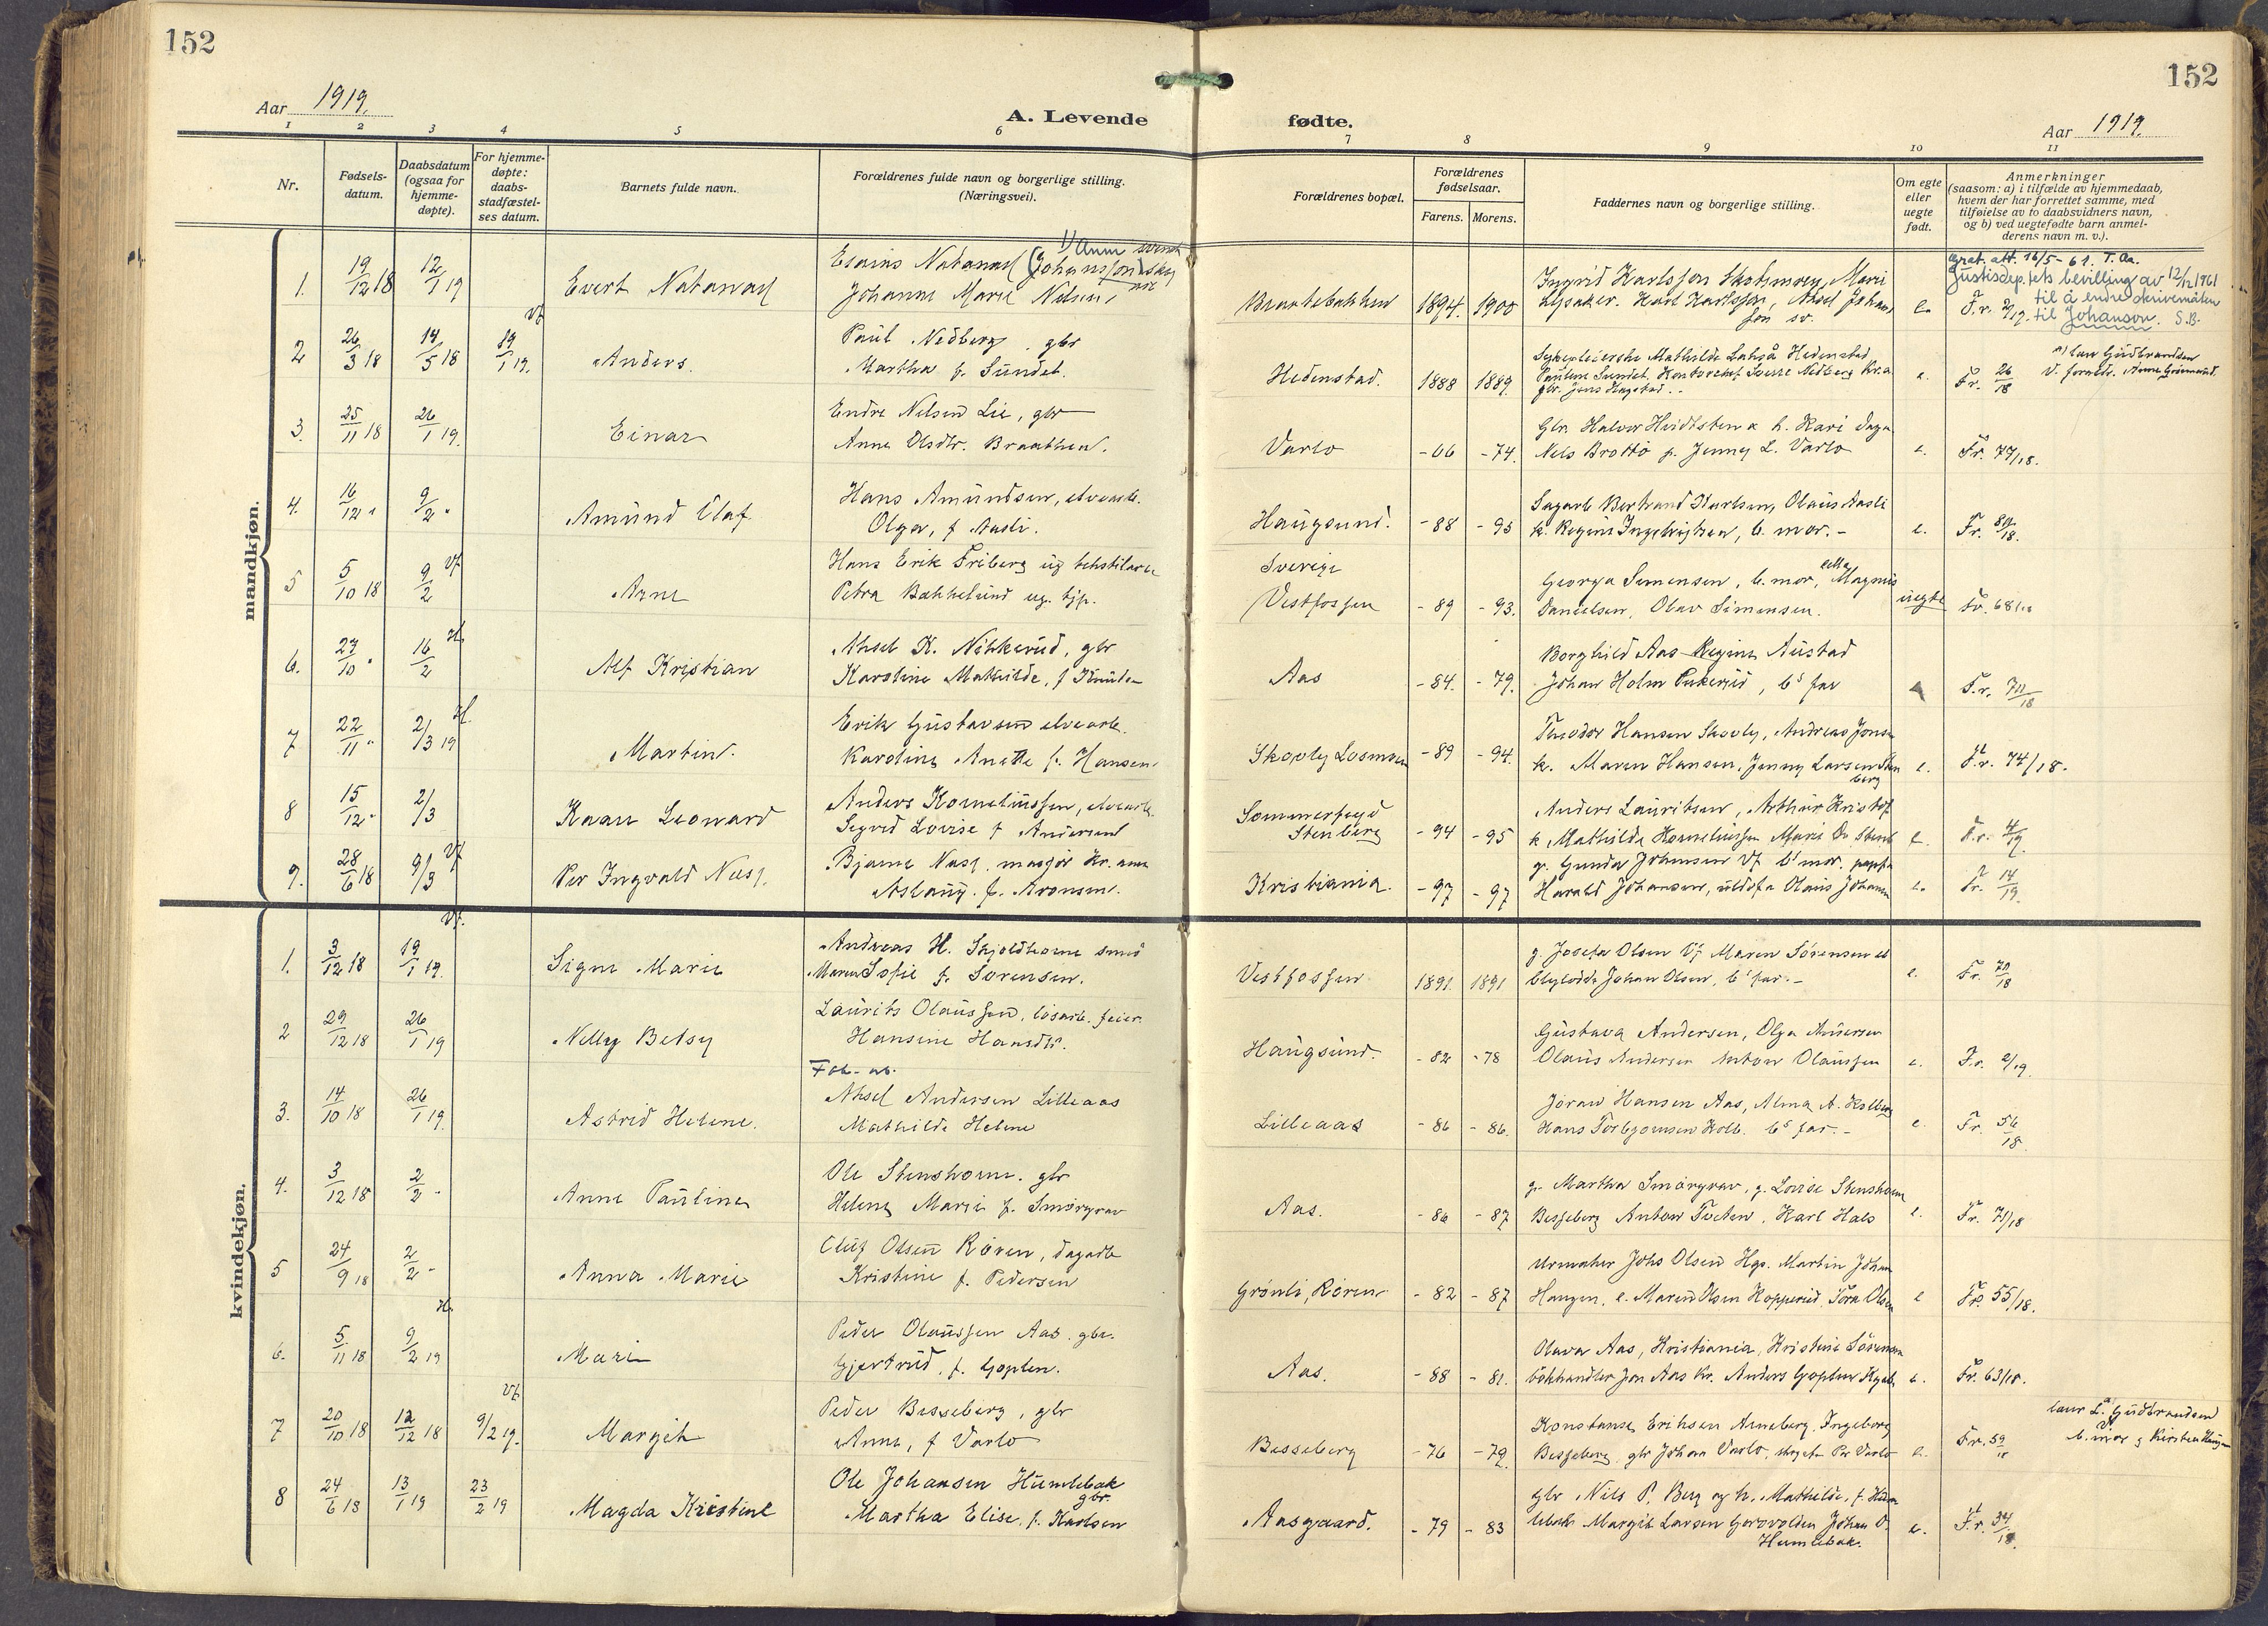 152
152
Aar 1919.
A. Levende fødte.
Aar 1919.
1 2 3 4 5 6 7 8 9 10 11
Nr.
Fødsels-
datum.
Daabsdatum
(ogsaa for
hjemme-
døpte).
For hjemme-
døpte:
daabs-
stadfæstel-
ses datum.
Barnets fulde navn.
Forældrenes fulde navn og borgerlige stilling.
(Næringsvei).
Forældrenes bopæl.
Forældrenes
fødselsaar.
Farens. Morens.
Faddernes navn og borgerlige stilling.
Om egte
eller
uegte
født.
Anmerkninger
(saasom: a) i tilfælde av hjemmedaab,
hvem der har forrettet samme, med
tilføielse av to daabsvidners navn,
og b) ved uegtefødte barn anmel-
derens navn m. v.).
mandkjøn.
Grat. att. 16/5-61. T. Aa.
Justisdep.tets bevilling av 12/12 1961
til å endre skrivemåten
til Johanson. S.B.
1. 19/12 18 12/1 19 Evert Natanael
Esaias Natanael (Johansson)
Johanne Marie Nilsen
Braatebakken 1894. 1900
Ingrid Karlsson Skotsmoen, Marie
Lysaker. Karl Karlsson, Aksel Johans
son sv.
e. F.r. 2/19.
2 26/3 18 14/5 18 19/1 19. Vf Anders.
Paul Nedberg. gbr
Martha f. Sundet.
Hedenstad. 1888 1889.
Sykepleierske Mathilde Hedenstad
Pauline Sundet, Kontorchef Sverre Nedberg Kr.a
gbr. Jens
e. Fr. 26/18
V. foreldr.
3. 25/11 18 26/1 19. Einar
Endre Nilsen Lie, gbr
Anna Olsdtr. Braathen.
Varlo -66 -74.
Gbr. Halvor Hvidtsten &amp; h. Kari
Nels Brotto p. Jenny L. Varlo
e. Fr. 77/18.
4. 16/12 " 9/2 " Amund Olaf
Hans Amundsen, elvearb.
Olga, f Aasli.
Haugsund. -88 -95
Sagarb Bertrand Karlsen, Olaus Aasli
k. Regine Ingebrigtsen, b. mor.-
e. Fr. 80/18.
5 5/10 18 9/2 Vf Arne
Hans Erik Friberg ug tekstilarb
Petra Bakkelund ug. tjp.
Sverige
Vestfossen -89 -93.
Georga Simensen, b. mor, Magnus
Danielsen, Olav Simensen.
uegte Fr. 68/18
6. 27/10 " 16/2 H. Alf Kristian
Aksel K. Nikkerud, gbr
Karoline Mathilde, f Knuds-
Aas -84. -79.
Borghild Aas Regine Austad
Johan Holm Pukerud, bs far
F.r. 70/18
7 22/11 " 2/3 19 H. Martin.
Erik Gustavsen elvearb.
Karoline Anette f. Hansen.
Skovly Losmoen -89 -94.
Theodor Hansen Skovly, Andreas Jonsen
k. Maren Hansen, Jenny Larsen Sten
berg
e. F.r. 74/18.
8 15/12 " 2/3 Kaare Leonard
Anders Korneliussen, elvearb.
Sigrid Lovise f Andersen
Sommerfryd
Stenberg -94 -95
Anders Lauritsen, Arthur Kristof
k. Mathilde Korneliussen Marie Do Stenb
e. F.r. 4/19.
9. 28/6 18 9/3 Vf Per Ingvald Næss.
Bjarne Næss.
Aslaug. f. Aronsen.
Kristiania. -97 -97
g. Gunda Johansen Vf b' mor.
Harald Johansen, Olaus Johansen
e. Fr. 14/19.
kvindekjøn.
1. 3/12 18 19/1 19. Vf. Signe Marie
Andreas H. Skjoldhorne smed
Maren Sofie f. Sørensen.
Vestfossen 1891. 1891
g Josefa Olsen Vf Maren Sørensen
Johan Olsen, b' far.-
e. Fr. 79/18
2 29/12 18 26/1 19 Nelly Betsy
Laurits Olaussen, løsarb. feier
Hansine Hansdtr.
Haugsund. -82 -78
Gustava Andersen, Olga Andersen
Olaus Andersen Anton Olaussen
e. F.r. 2/19.
3. 14/10 18 26/1 19. Astrid Helene.
Fab-arb.
Aksel Andersen Lilleaas
Mathilde Helene
Lilleaas -86 -86.
Joran Hansen Aas, Alma A. Kolberg
Hans Torbjørnsen Kolb. bs far.-
e. Fr. 56/18.
4. 3/12 18 2/2 - Anne Pauline
Ole Stenshorne. gbr
Helene Marie f. Smørgrav
Aas. -86 -87
g. Martha Smørgrav, g. Lovise Stenshorne
Besseberg Anton Toten, Karl Hals
e. Fr. 71/18
5 24/9 18 2/2 - Anna Marie
Oluf Olsen Røren, dagarb
Kristine f. Pedersen
Grønli, Røren -82 -87
Urmaker Johs Olsen Hgs. Martin Johan
Haugen, e. Maren Olsen Kopperud. Tora Olsen
e Fr. 55/18.
6. 5/11 18 9/2 19 H. Mari
Peder Olaussen Aas. gbr.
Gjertrud, f. Goplen.
Aas. -88 -81.
Olava Aas, Kristiania, Kristine Sørensen
bokhandler Jon Aas Kr. Anders Goplen
e. Fr. 63/18.
7 20/10 18 12/12 18 9/2 19. Vf Margit
Peder Besseberg, gbr
Anne, f Varlo
Besseberg -76 -79.
Konstanse Eriksen Arneberg, Ingeborg
Besseberg gbr Johan Varlo, Per Varlo
e. Fr. 59/18
Gudbrandsen
b. mor g Kirsten Haugen
8 24/6 18 13/1 19 23/2 19 Magda Kristine
Ole Johansen Humlebæk
gbr.
Martha Elise. f. Karlsen
Aasgaard. -79 -83
gbr Nils P. Berg og h. Mathilde, f. Hum
lebæk Margit Larsen Johan O.
Humlebæk.
e. F.r. 34/18.